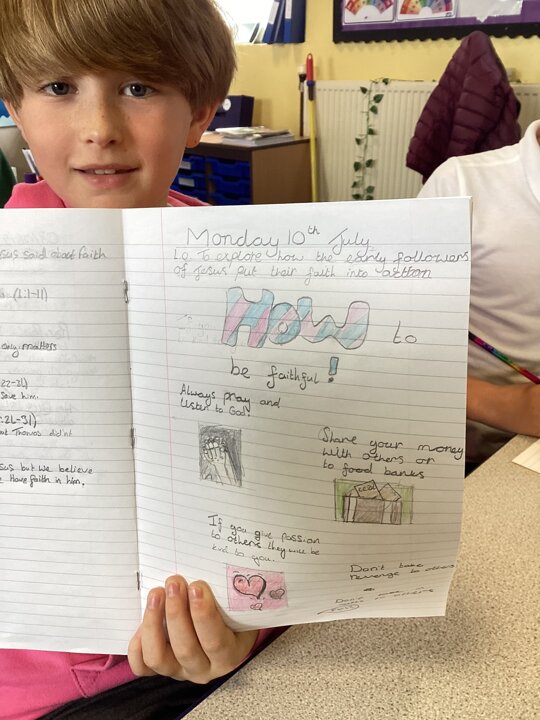 Monday 10th July
LO To explore how the early followers
of Jesus put their faith into action
HOW to
be faithful!
Always pray and
listen to God.
Share your money
with others or
to food banks
If you give passion
to others they will be
kind to you.
Don't take
revenge to others
said about faith
(1:1-11)
only matters
save him.
:26-31)
but Thomas didn't
but we believe
Have faith in him.